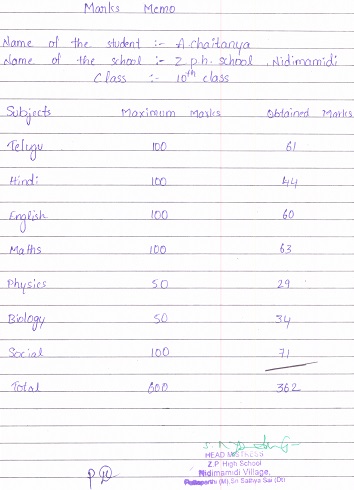 Marks Memo
Name of the student :- A.chaitanya
Name of the school :- Z.p.h. school, Nidimamidi
Class :- 10th class
Subjects Maximum Marks Obtained Marks
Telugu 100 61
Hindi 100 44
English 100 60
Maths 100 63
Physics 50 29
Biology 50 34
Social 100 71
Total 600 362
HEAD MISTRESS
Z.P. High School
Nidimamidi Village,
Puttaparthi (M), Sri Sathya Sai (Dt)